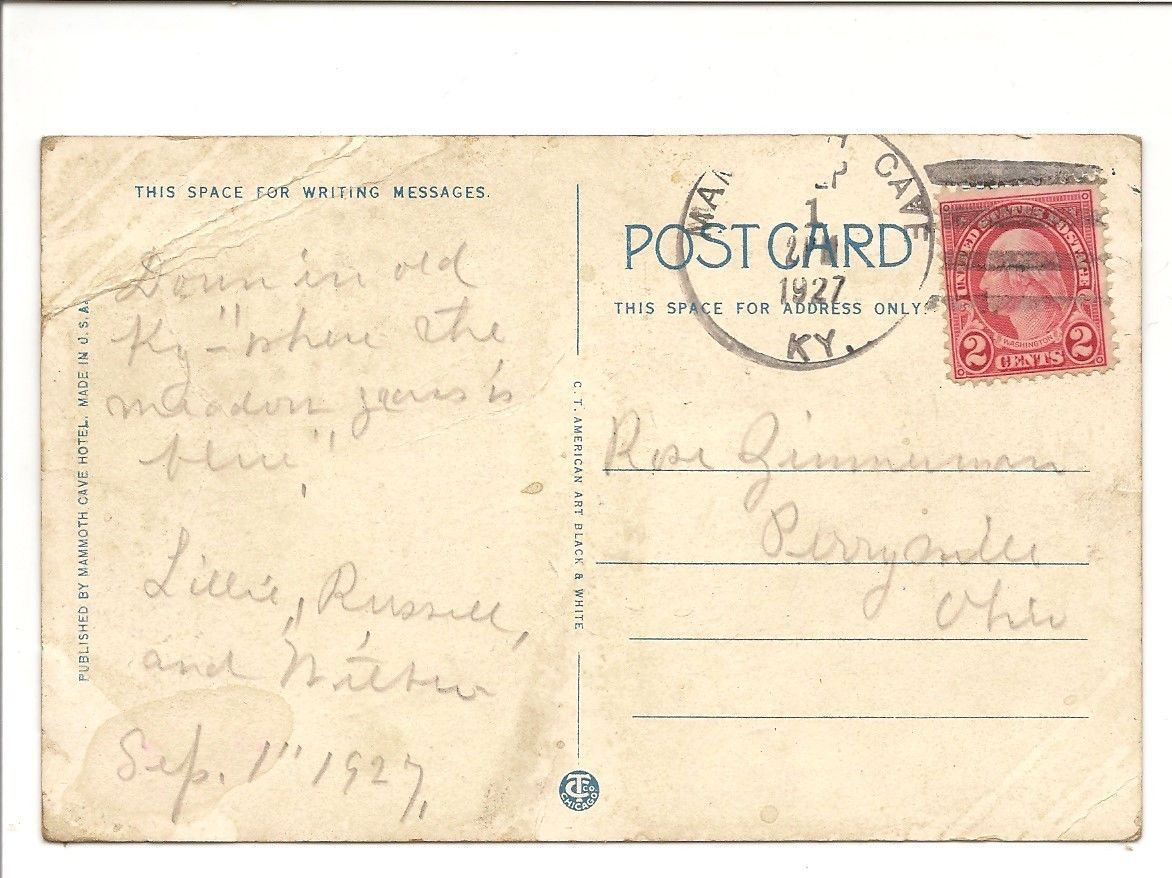 THIS SPACE FOR WRITING MESSAGES.
Down in old
Ky – "where the
meadow grass is
blue"
Lillie, Russell,
and Wilbur
Sep. 1" 1927,
PUBLISHED BY MAMMOTH CAVE HOTEL. MADE IN U.S.A.
C. T. AMERICAN ART BLACK & WHITE
CTCO
CHICAGO
CAVE
1
1927
KY.
POST CARD
THIS SPACE FOR ADDRESS ONLY.
UNITED STATES POSTAGE
WASHINGTON
2 CENTS 2
Rose Zimmerman
Perrysville
Ohio